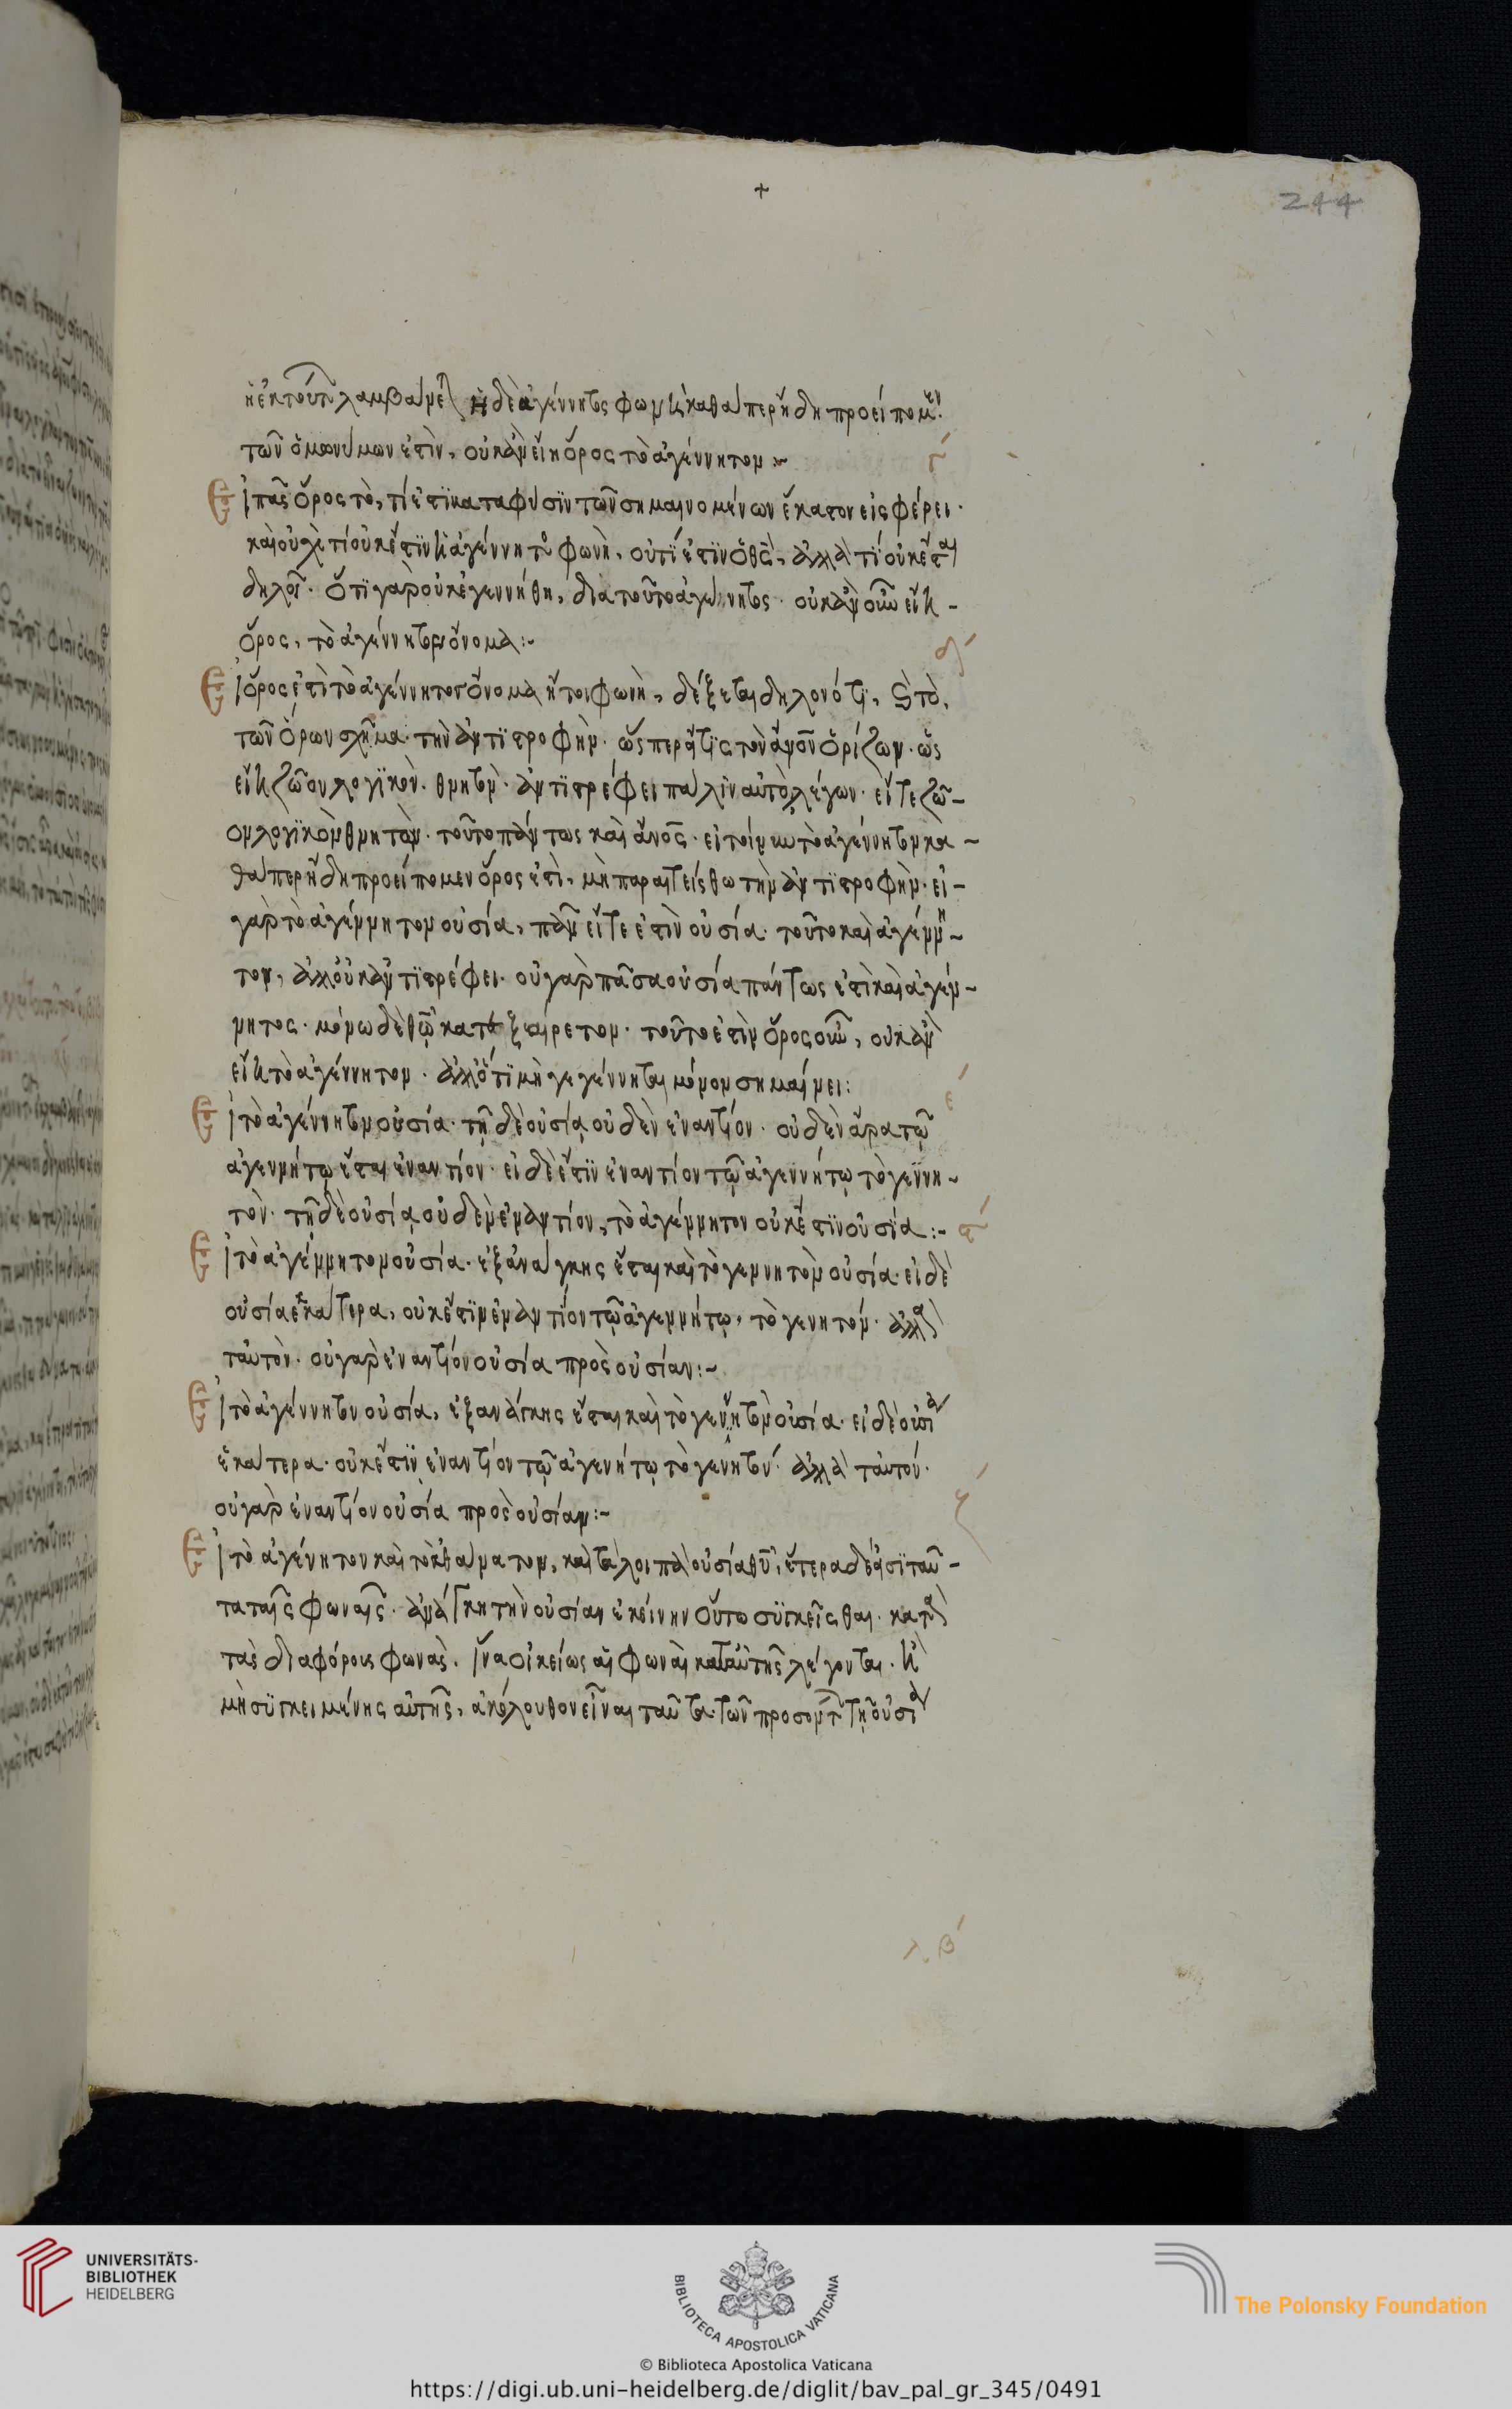 +
244
ἢ ἐκ τούτου λαμβάνει. ἡ δὲ ἀγέννητος φωνὴ καθάπερ ἤδη προείπομεν
τῶν ὁμωνύμων ἐστὶν, οὐκ ἂν εἴη ὅρος τὸ ἀγέννητον :~
γ´
Εἰ πᾶς ὅρος τὸ, τί ἐστι κατα φύσιν τῶν σημαινομένων ἕκαστον εἰσφέρει·
καὶ οὐχὶ τί οὐκ ἔστιν ἡ ἀγέννητος φωνὴ, οὐ τί ἐστιν ὁ θς̄, ἀλλὰ τί οὐκ ἔσται
δηλοῖ· ὅτι γὰρ οὐκ ἐγεννήθη, διατοῦτο ἀγέννητος· οὐκ ἂν οὖν εἴη -
ὅρος, τὸ ἀγέννητον ὄνομα :~
δ´
Εἰ ὅρος ἐστὶ τὸ ἀγέννητον ὄνομα ἤτοι φωνὴ, δέξεται δηλονότι, καὶ τὸ,
τῶν ὅρων σχῆμα· τὴν ἀντιστροφὴν· ὥσπερ εἴ τις τὸν ἄνον̄ ὁρίζων· ὡς
εἴη ζῶον λογικὸν· θνητὸν· ἀντιστρέφει πάλιν αὐτὸ λέγων· εἴτε ζῶ-
ον λογικὸν θνητὸν· τοῦτο πάντως καὶ ἄνος̄· εἰ τοίνυν τὸ ἀγέννητον κα -
θάπερ ἤδη προείπομεν ὅρος ἐστὶ, μὴ παραιτείσθω τὴν ἀντιστροφὴν· εἰ -
γὰρ τὸ ἀγέννητον οὐσία, πᾶν εἴτε ἐστὶν οὐσία· τοῦτο καὶ ἀγέννη -
τον, ἀλλ' οὐκ ἀντιστρέφει· οὐ γὰρ πᾶσα οὐσία πάντως ἐστὶ καὶ ἀγέν -
νητος· μόνω δὲ θῶ̄ κατ' ἐξαίρετον· τοῦτο ἐστὶν ὅρος οὖν, οὐκ ἂν
εἴη τὸ ἀγέννητον· ἀλλ' ὅτι μὴ γεγέννηται μόνον σημαίνει :
ε´
Εἰ τὸ ἀγέννητον οὐσία· τῇ δὲ οὐσίᾳ οὐδὲν ἐναντίον· οὐδὲν ἄρα τῷ
ἀγεννήτῳ ἔσται ἐναντίον· εἰ δὲ ἔστιν ἐναντίον τῷ ἀγεννήτῳ τὸ γεννη -
τὸν· τῇ δὲ οὐσίᾳ οὐδὲν ἐναντίον, τὸ ἀγέννητον οὐκ ἔστιν οὐσία :~ ϛ´
Εἰ τὸ ἀγέννητον οὐσία· ἐξ ἀνάγκης ἔσται καὶ τὸ γεννητὸν οὐσία· εἰ δὲ
οὐσία ἑκάτερα, οὐκ ἔστιν ἐναντίον τῷ ἀγεννήτῳ, τὸ γενητόν· ἀλλὰ
ταὐτὸν· οὐ γὰρ ἐναντίον οὐσία πρὸς οὐσίαν :~
Εἰ τὸ ἀγέννητον οὐσία, ἐξ ανάγκης ἔσται καὶ τὸ γεννητὸν οὐσία· εἰ δὲ οὐσία
ἑκάτερα· οὐκ ἔστιν ἐναντίον τῷ ἀγενήτῳ τὸ γενητόν· ἀλλὰ ταὐτόν·
οὐ γὰρ ἐναντίον οὐσία πρὸς οὐσίαν :~
ζ´
Εἰ τὸ ἀγένητον καὶ τὸ ἀθάνατον, καὶ τὰ λοιπὰ οὐσία θῡ, ἕτερα δέ εἰσι ταῦ -
τα ταῖς φωναῖς· ἀνάγκη τὴν οὐσίαν ἐκείνην οὕτω συγκεῖσθαι· κατὰ
τὰς διαφόρους φωνὰς. ἵνα οἰκείως αἱ φωναὶ κατ' αὐτῆς λέγονται· ἢ
μὴ συγκειμένης αὐτῆς, ἀκόλουθον εἶναι ταῦτα τῶν προσόντων τῇ οὐσίᾳ
λβ´
UNIVERSITÄTS-
BIBLIOTHEK
HEIDELBERG
BIBLIOTECA APOSTOLICA VATICANA
The Polonsky Foundation
© Biblioteca Apostolica Vaticana
https://digi.ub.uni-heidelberg.de/diglit/bav_pal_gr_345/0491